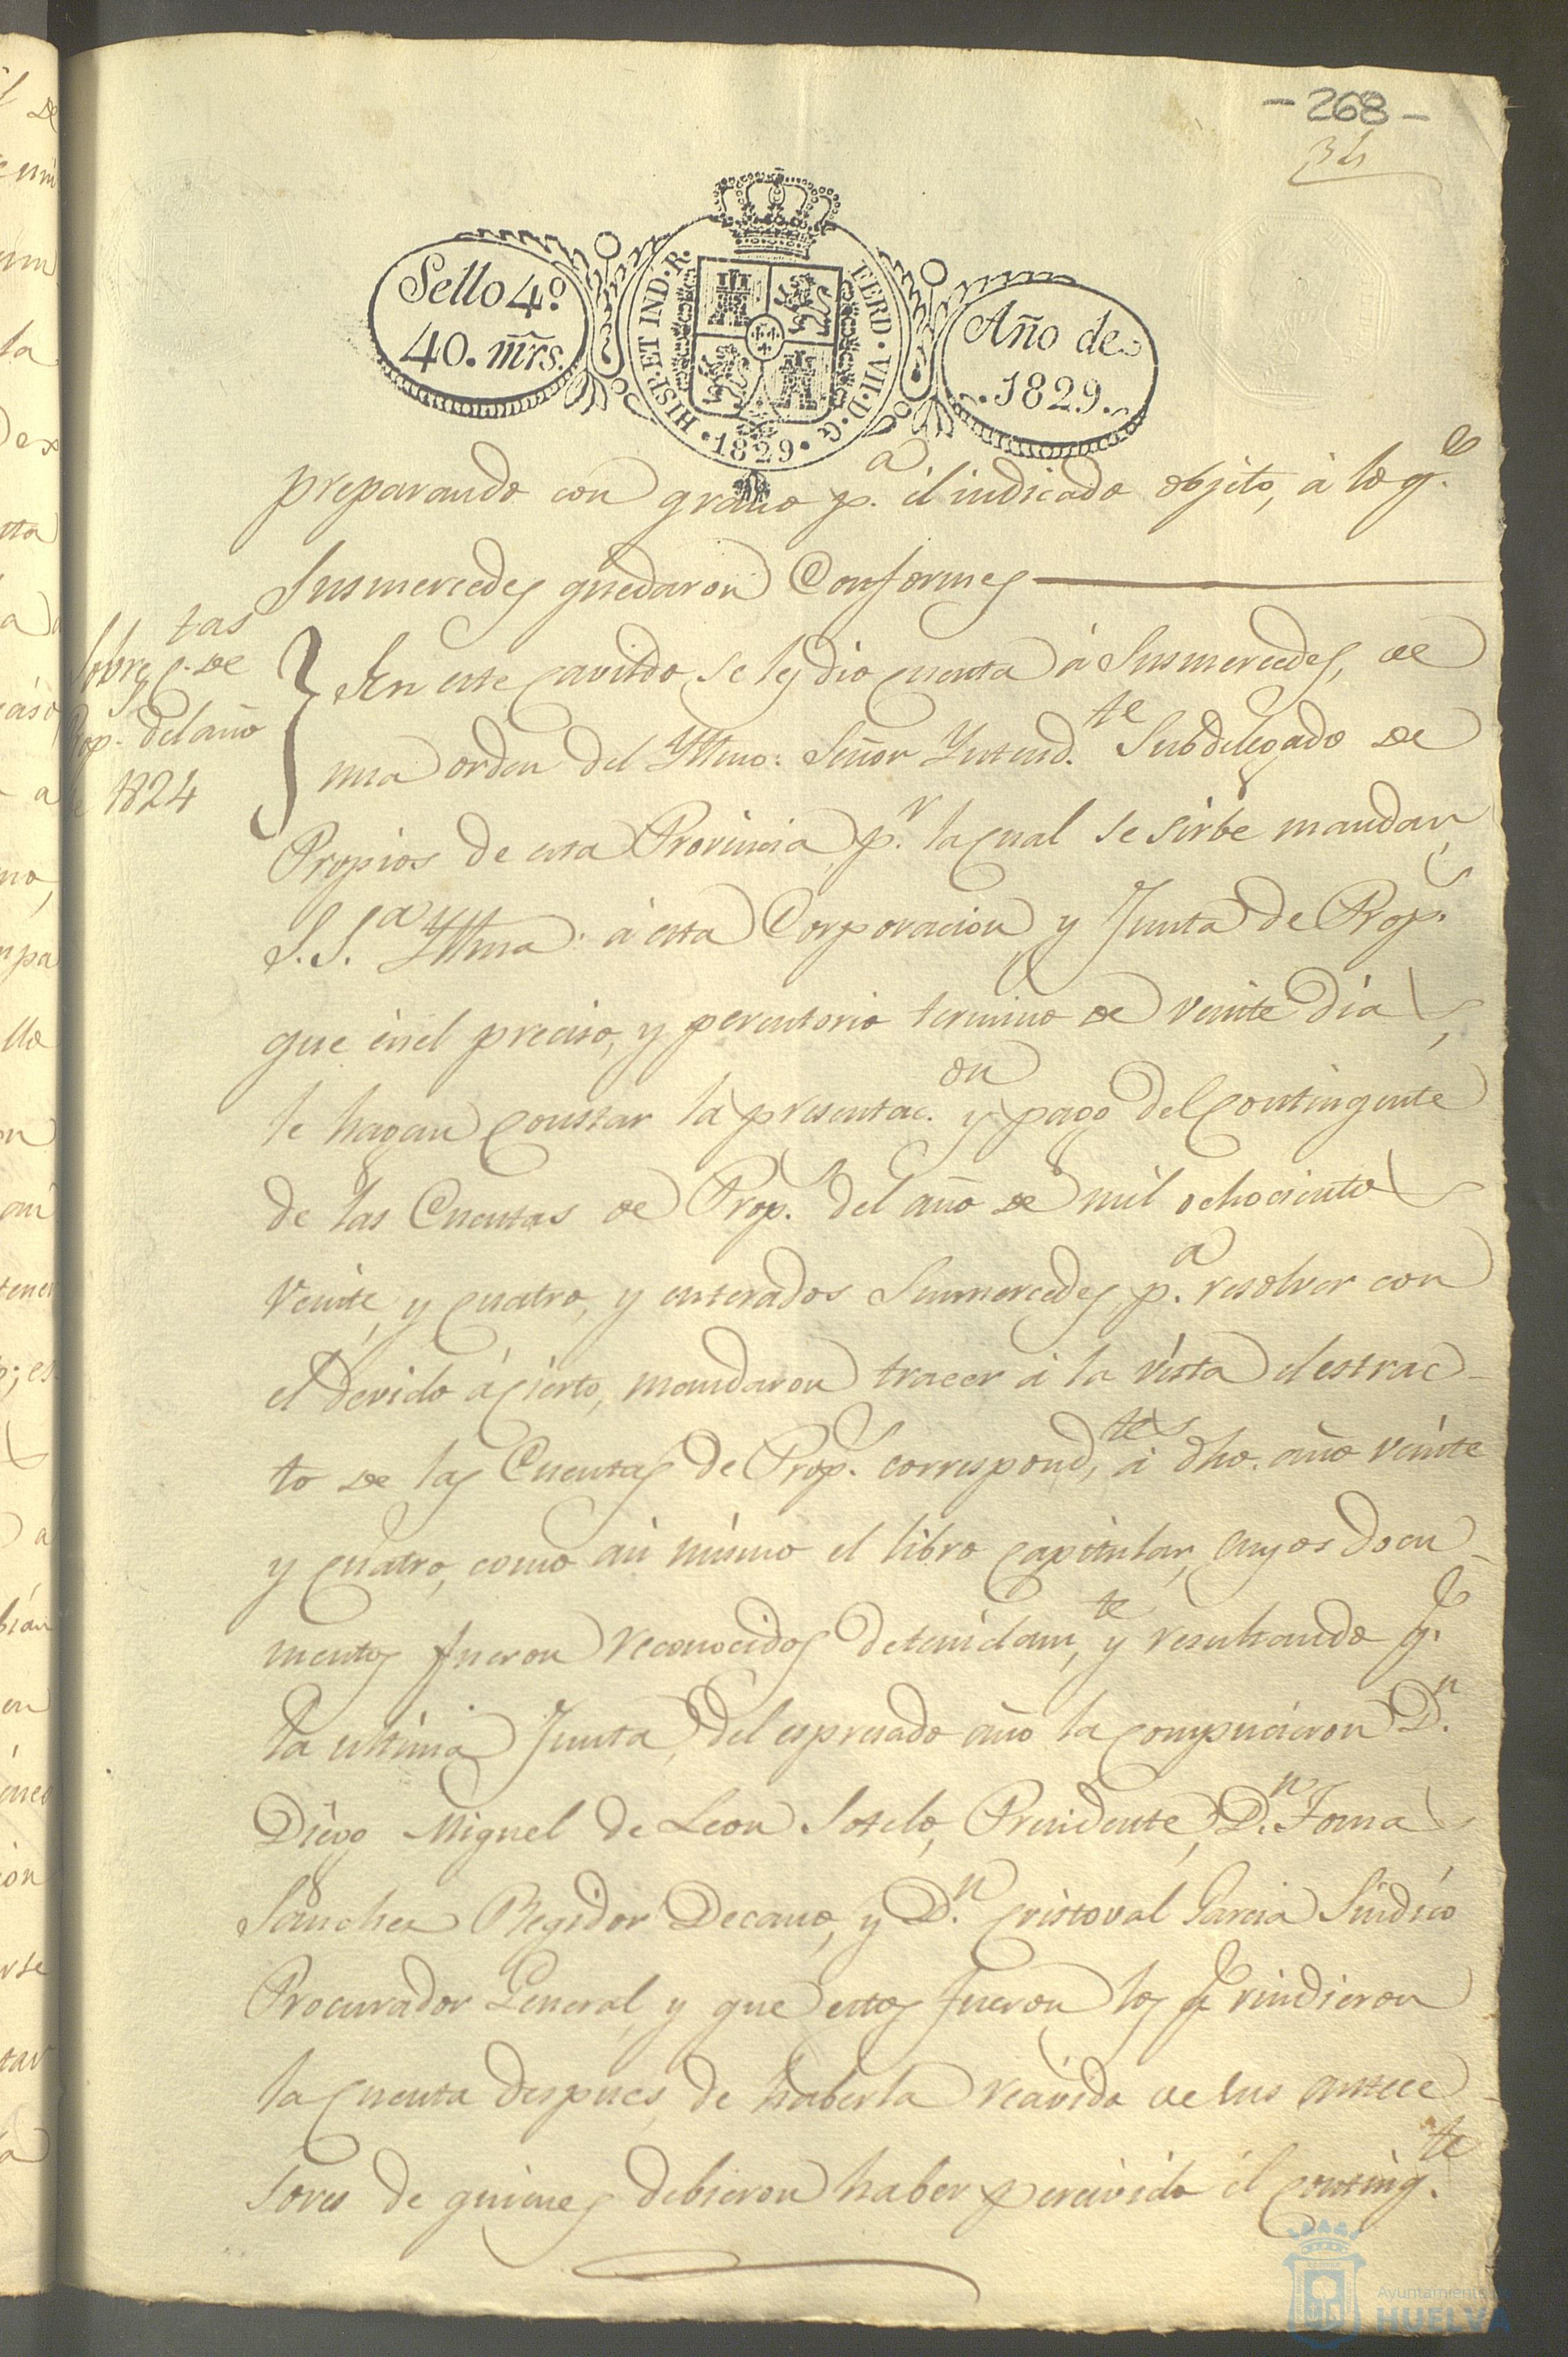 - 268 -
34
Sello 4º.
40. mrs.
HISP. ET IND. R. FERD. VII. D. G. 1829.
Año de
1829.
preparando con grano p.ª él indicado objeto, à lo q.e
Susmercedes quedaron Conformes
Sobre c.tas de
Prop.s del año
de 1824
En este cavildo se les dio cuenta à Susmercedes, de
una orden del Yltmo: Señor Yntend.te Subdelegado de
Propios de esta Provincia p.r la cual se sirbe mandar
S. S.ª Yltma. à esta Corporacion y Junta de Prop.s
que ènel preciso, y perentorio termino de veinte dias
le hagan constar la presentac.on y pago del contingente
de las Cuentas de Prop.s del año de mil ochocientos
veinte y cuatro, y enterados Susmercedes, p.ª resolver con
el devido àcierto, mandaron traeer à la vista el estrac-
to de las Cuentas de Prop.s correspond.tes à dho. año veinte
y cuatro, como asi mismo el libro capitular, cuyos docu-
mentos fueron reconocidos detenidam.te y resultando q.e
la ultima Junta, del espresado año la compusieron D.n
Diego Miguel de Leon Sotelo, Presidente, D.n Tomas
Sanchez Regidor Decano, y D.n Cristoval Garcia Sindico
Procurador General, y que estos fueron los q.e rindieron
la cuenta despues, de haberla reavida de sus antece-
sores de quienes debieron haber percivido él conting.te
Ayuntamiento de
HUELVA